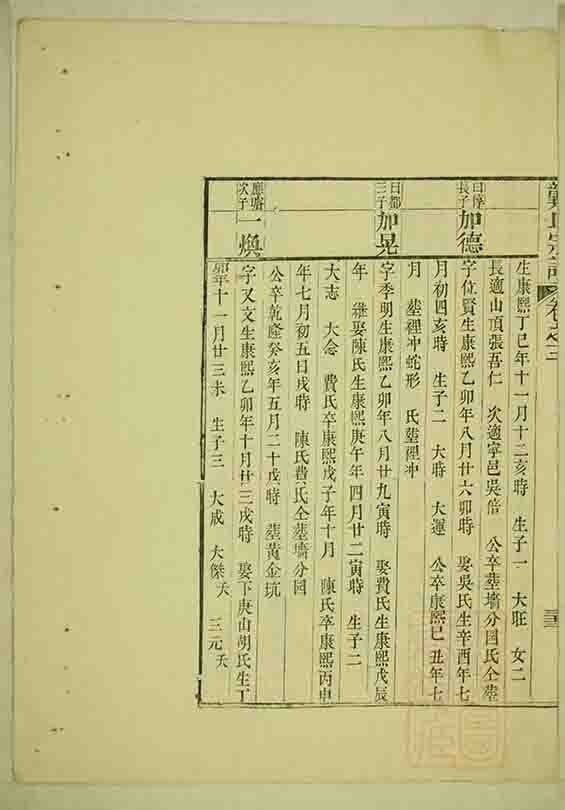 宗譜 卷之三
生康熙丁巳年十一月十二亥時 生子一 大旺 女二
長適山頂張吾仁 次適寧邑吳倍 公卒塟墻分囯氏仝塟
曰摩長子 加德 字位賢生康熙乙卯年八月廿六卯時 娶吳氏生辛酉年七
月初四亥時 生子二 大時 大運 公卒康熙巳丑年七
月 塟裡冲蛇形 氏塟裡冲
曰都三子 加晃 字季明生康熙乙卯年八月廿九寅時 娶費氏生康熙戊辰
年 繼娶陳氏生康熙庚午年四月廿二寅時 生子二
大志 大念 費氏卒康熙戊子年十月 陳氏卒康熙丙申
年七月初五日戌時 陳氏費氏仝塟墻分囯
公卒乾隆癸亥年五月二十戌時 塟黄金坑
應 次子 一煥 字又文生康熙乙卯年十月廿三戌時 娶下庚山胡氏生丁
卯年十一月廿三未 生子三 大成 大傑夭 三元夭